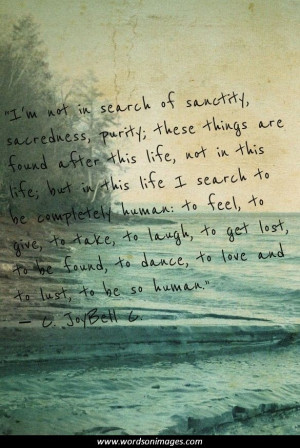 "I'm not in search of sanctity,
sacredness, purity; these things are
found after this life, not in this
life; but in this life I search to
be completely human: to feel, to
give, to take, to laugh, to get lost,
to be found, to dance, to love and
to lust, to be so human."
— C. JoyBell C.
www.wordsonimages.com